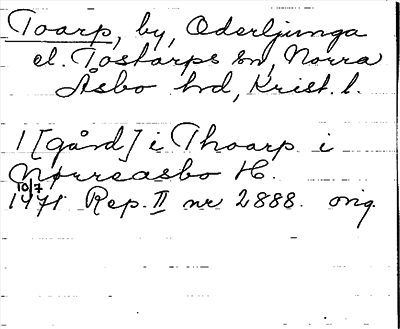 Toarp, by, Oderljunga
el. Tostarps sn, Norra
Åsbo hd, Krist. l.
1 [gård] i Thoarp i
Nørreasbo H.
10/7
1471 Rep. II nr 2888. orig.